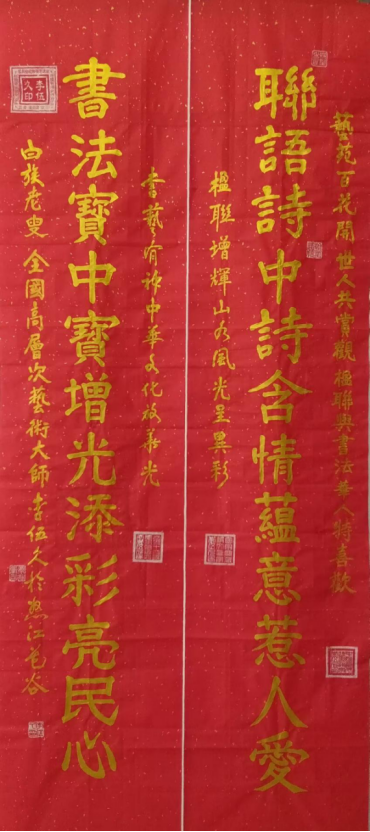 藝苑百花開世人共賞觀楹聯與書法華人特喜歡
聯語詩中詩含情蘊意惹人愛
楹聯增輝山水風光呈異彩
書藝有神中華文化放異光
書法寶中寶增光添彩亮民心
白族老叟全國高層次藝術大師李伍久於怒江芭谷
李伍久印